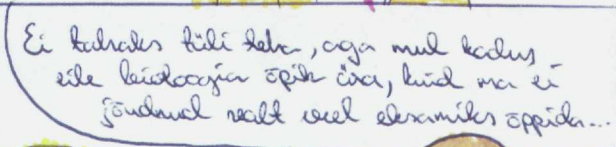 Ei tahaks tüli teha, aga mul kadus
eile bioloogia õpik ära, kuid ma ei
jõudnud sealt veel eksamiks õppida...